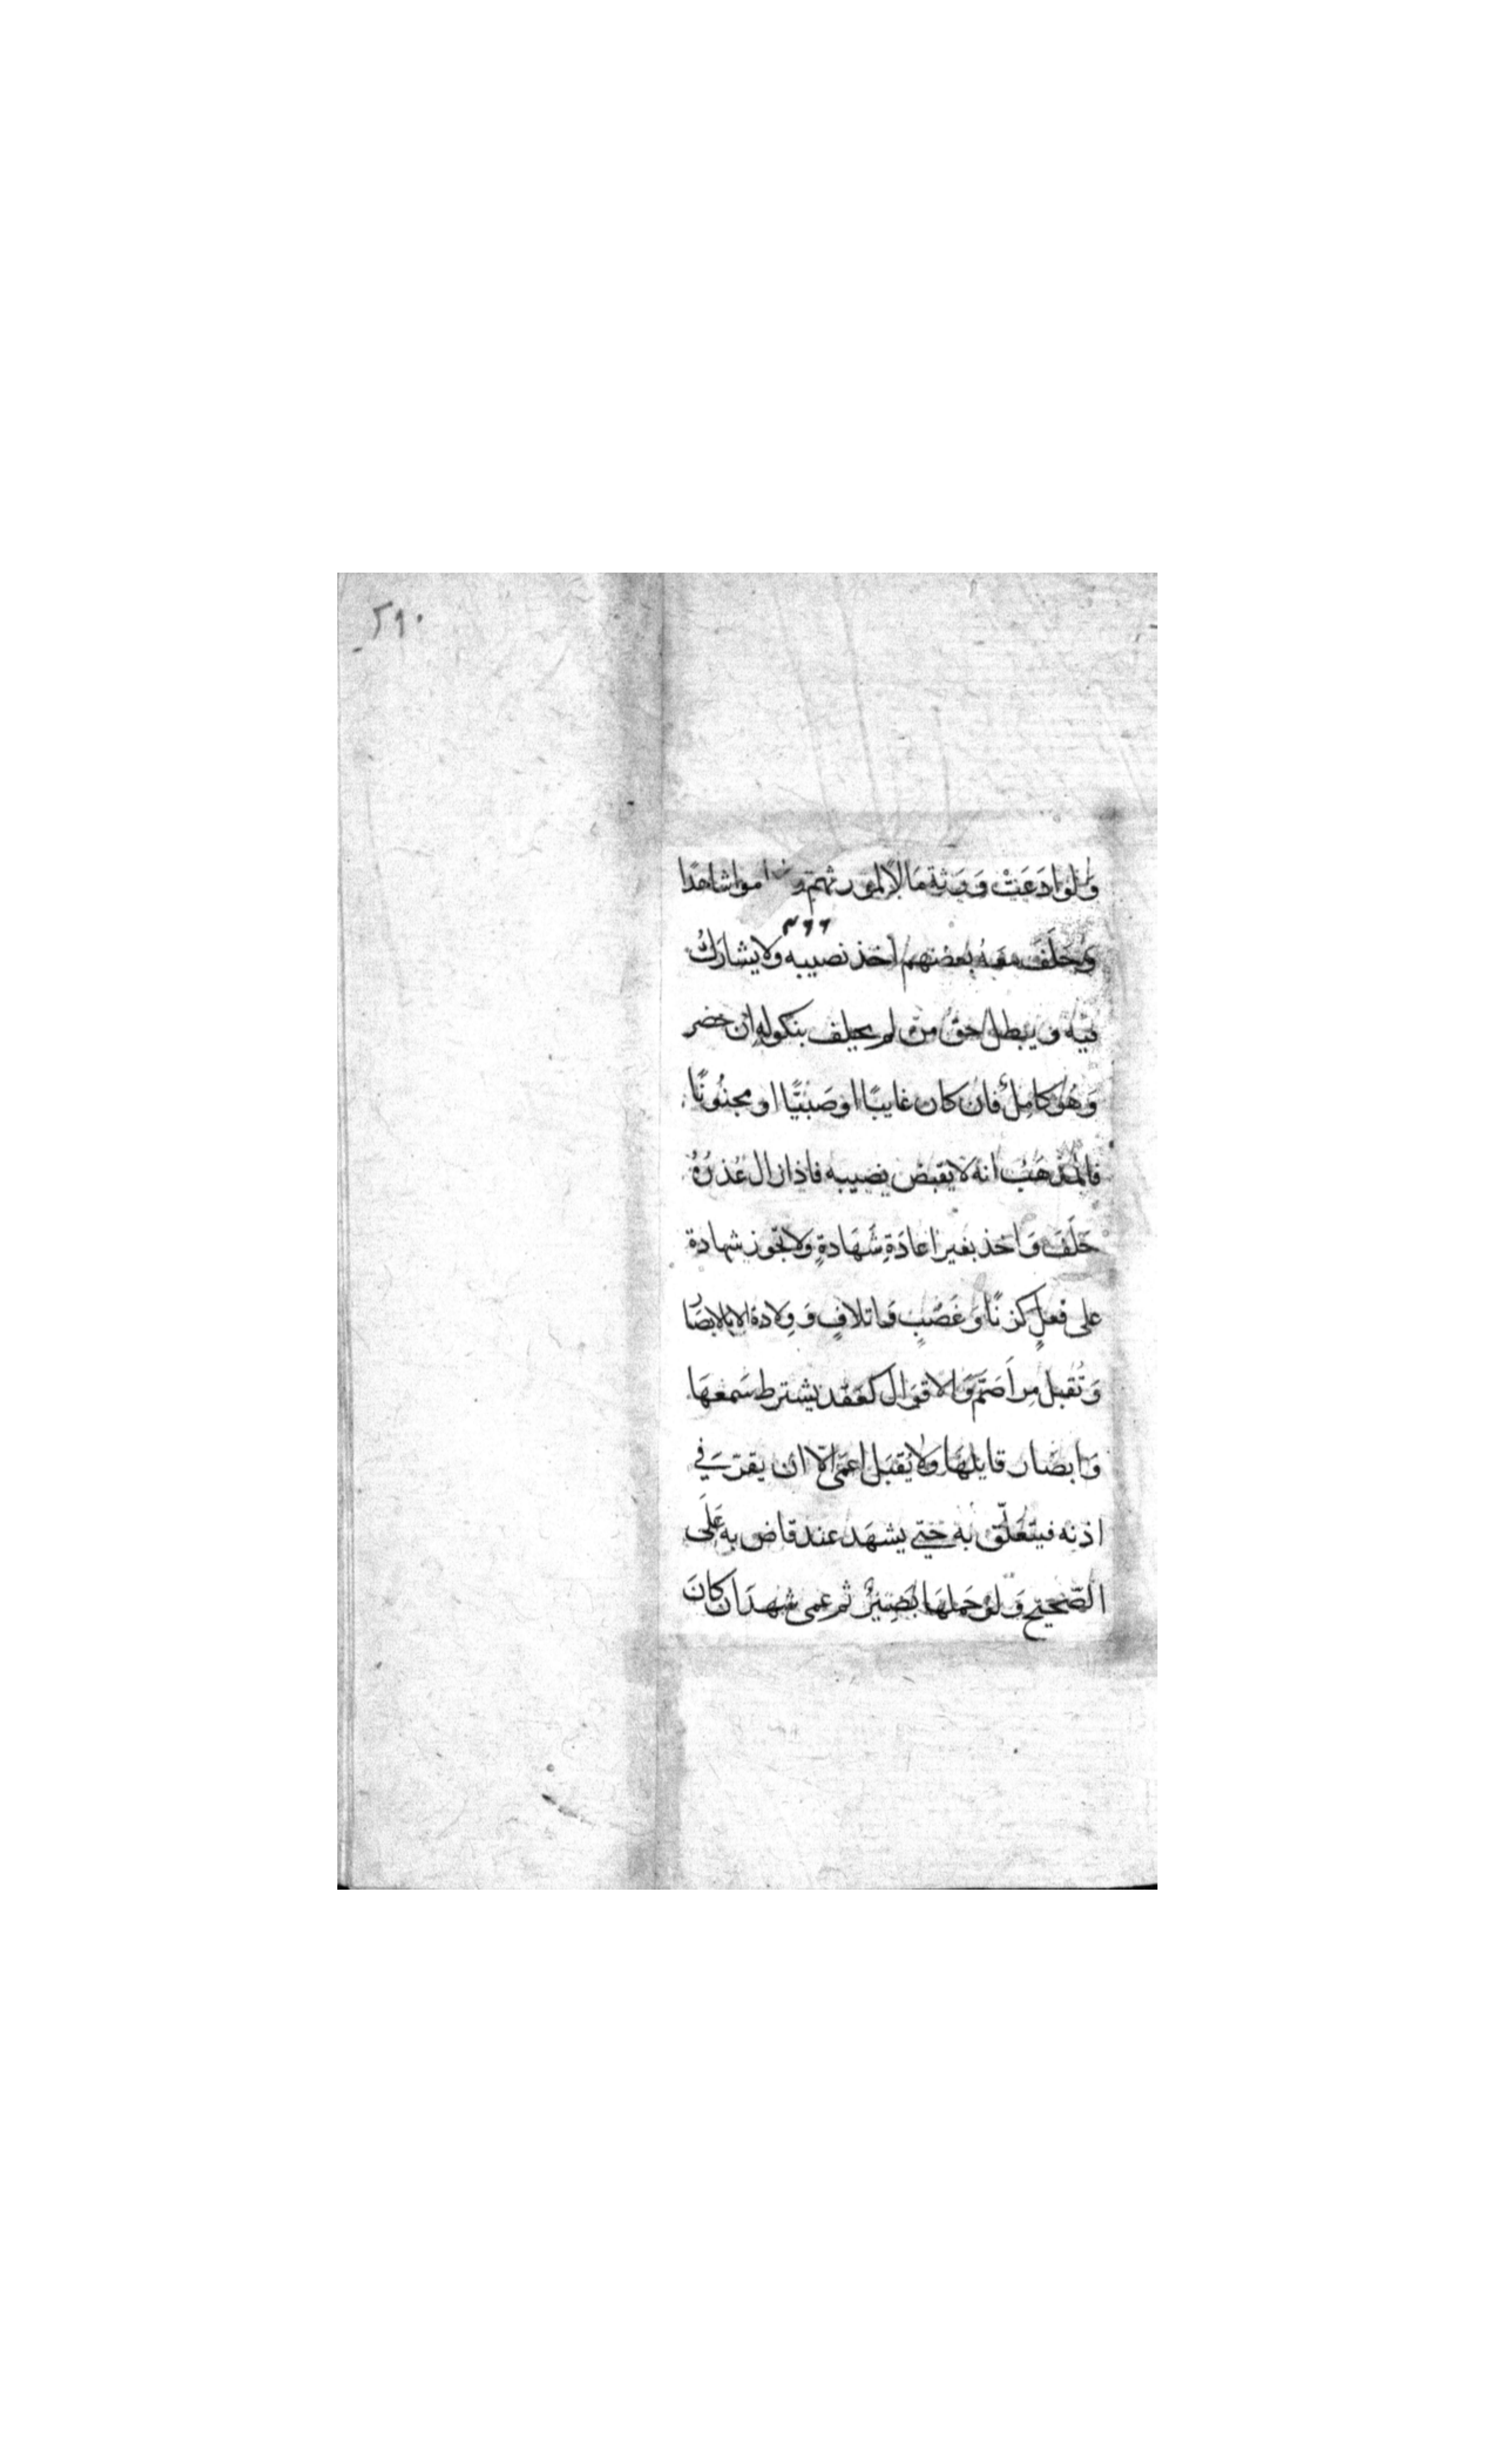 ٢٩٠
ولو ادعت ورثة مالا لمورثهم و اموا شاهدا
وحلف معه بعضهم اخذ نصيبه ولا يشارك
فيه ويبطل حق من لم يحلف بنكوله ان حضر
وهو كامل فان كان غايبا او صبيا او مجنونا
فالمذهب انه لا يقبض نصيبه فاذا زال عذره
حلف واخذ بغير اعادة شهادة ولا تجوز شهادة
على فعل كزنا وغصب واتلاف وولادة الا بالابصار
وتقبل من اصم والاقوال كعقد يشترط سمعها
وابصار قايلها ولا يقبل اعمى الا ان يقر في
اذنه فيتعلق به حتى يشهد عند قاض به على
الصحيح ولو حملها بصير ثم عمى شهد ان كان